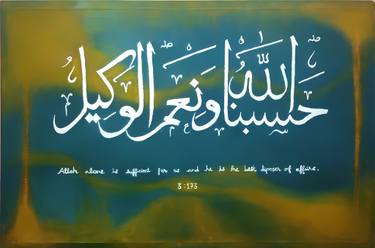 حسبنا الله ونعم الوكيل
Allah alone is sufficient for us and he is the best disposer of affairs.
3:173